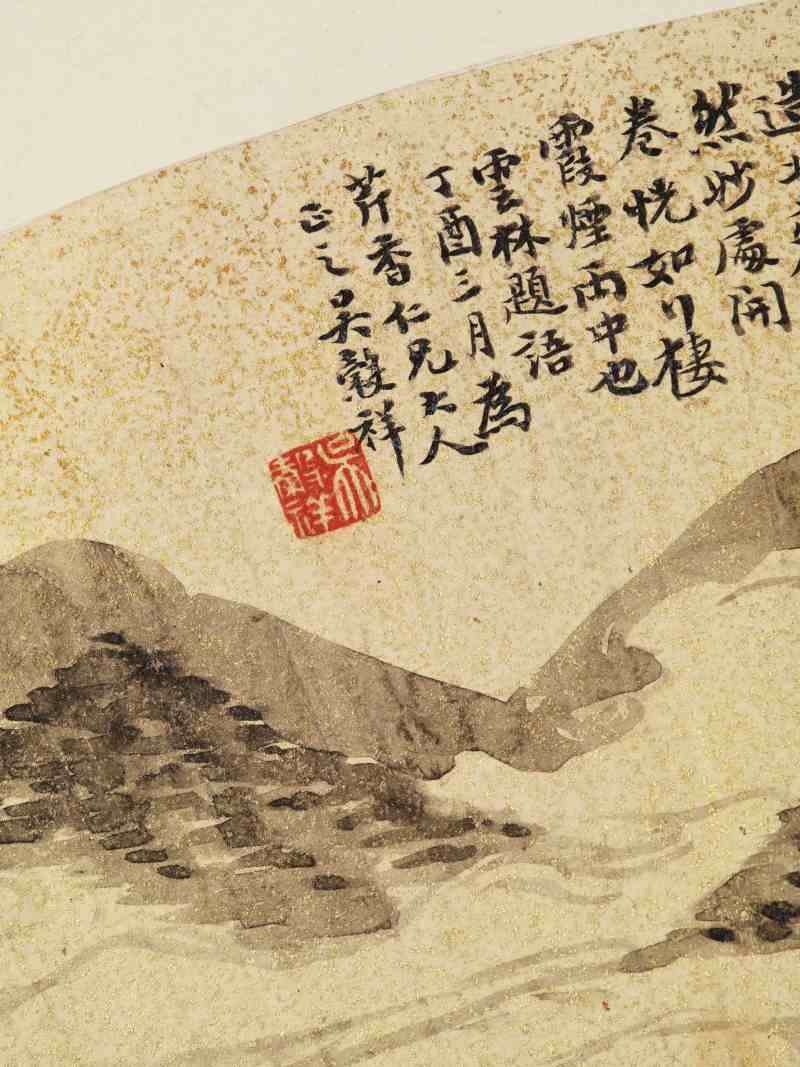 造
然妙處開
卷恍如行棲
霞煙雨中也
雲林題語
丁酉三月為
芹香仁兄大人
正之吳穀祥
吳穀祥